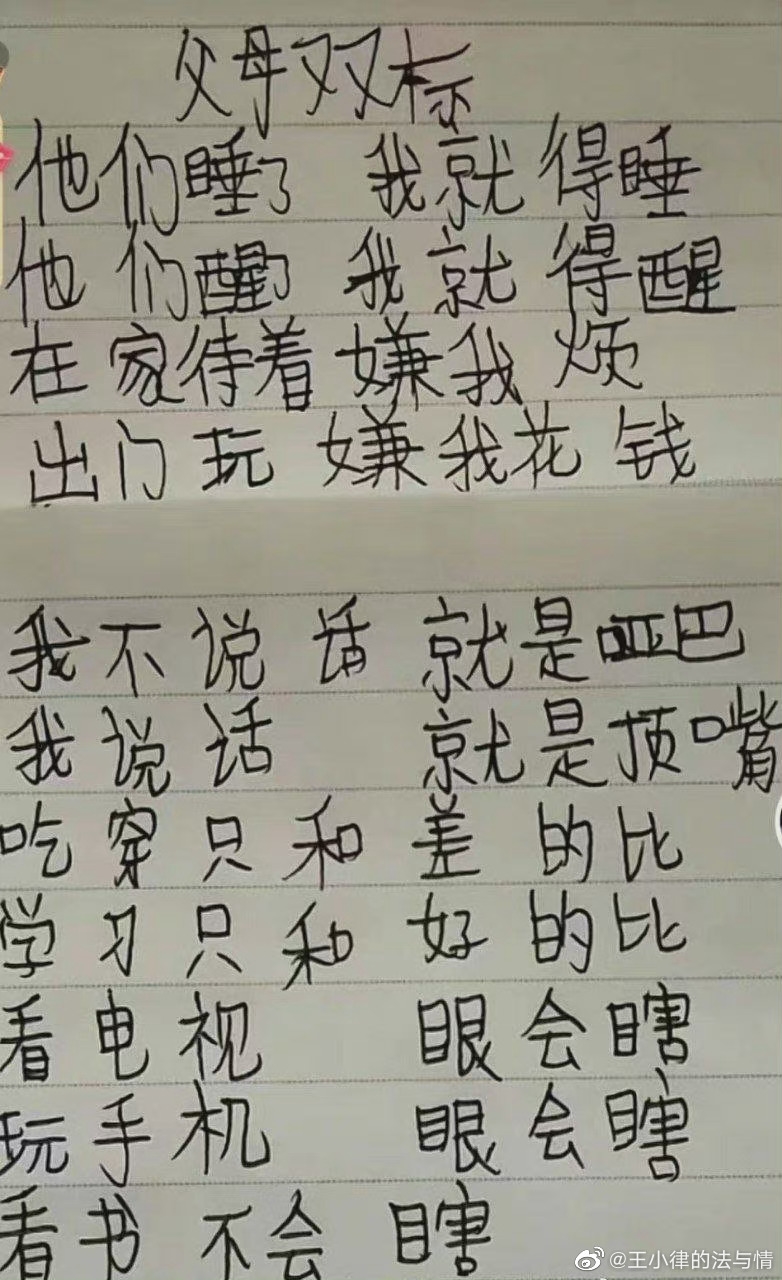 父母双标
他们睡了 我就得睡
他们醒了 我就得醒
在家待着 嫌我烦
出门玩 嫌我花钱
我不说话 就是哑巴
我说话 就是顶嘴
吃穿只和差的比
学习只和好的比
看电视 眼会瞎
玩手机 眼会瞎
看书不会瞎
@王小律的法与情